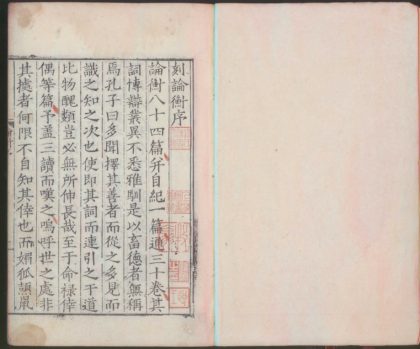 刻論衡序
論衡八十四篇并自紀一篇通三十卷其
詞博辯叢異不悉雅馴是以畜德者無稱
焉孔子曰多聞擇其善者而從之多見而
識之知之次也使即其詞而連引之于道
比物醜類豈必無所伸長哉至于命祿倖
偶等篇予蓋三讀而嘆之嗚呼世之處非
其據者何限不自知其倖也而媚狐